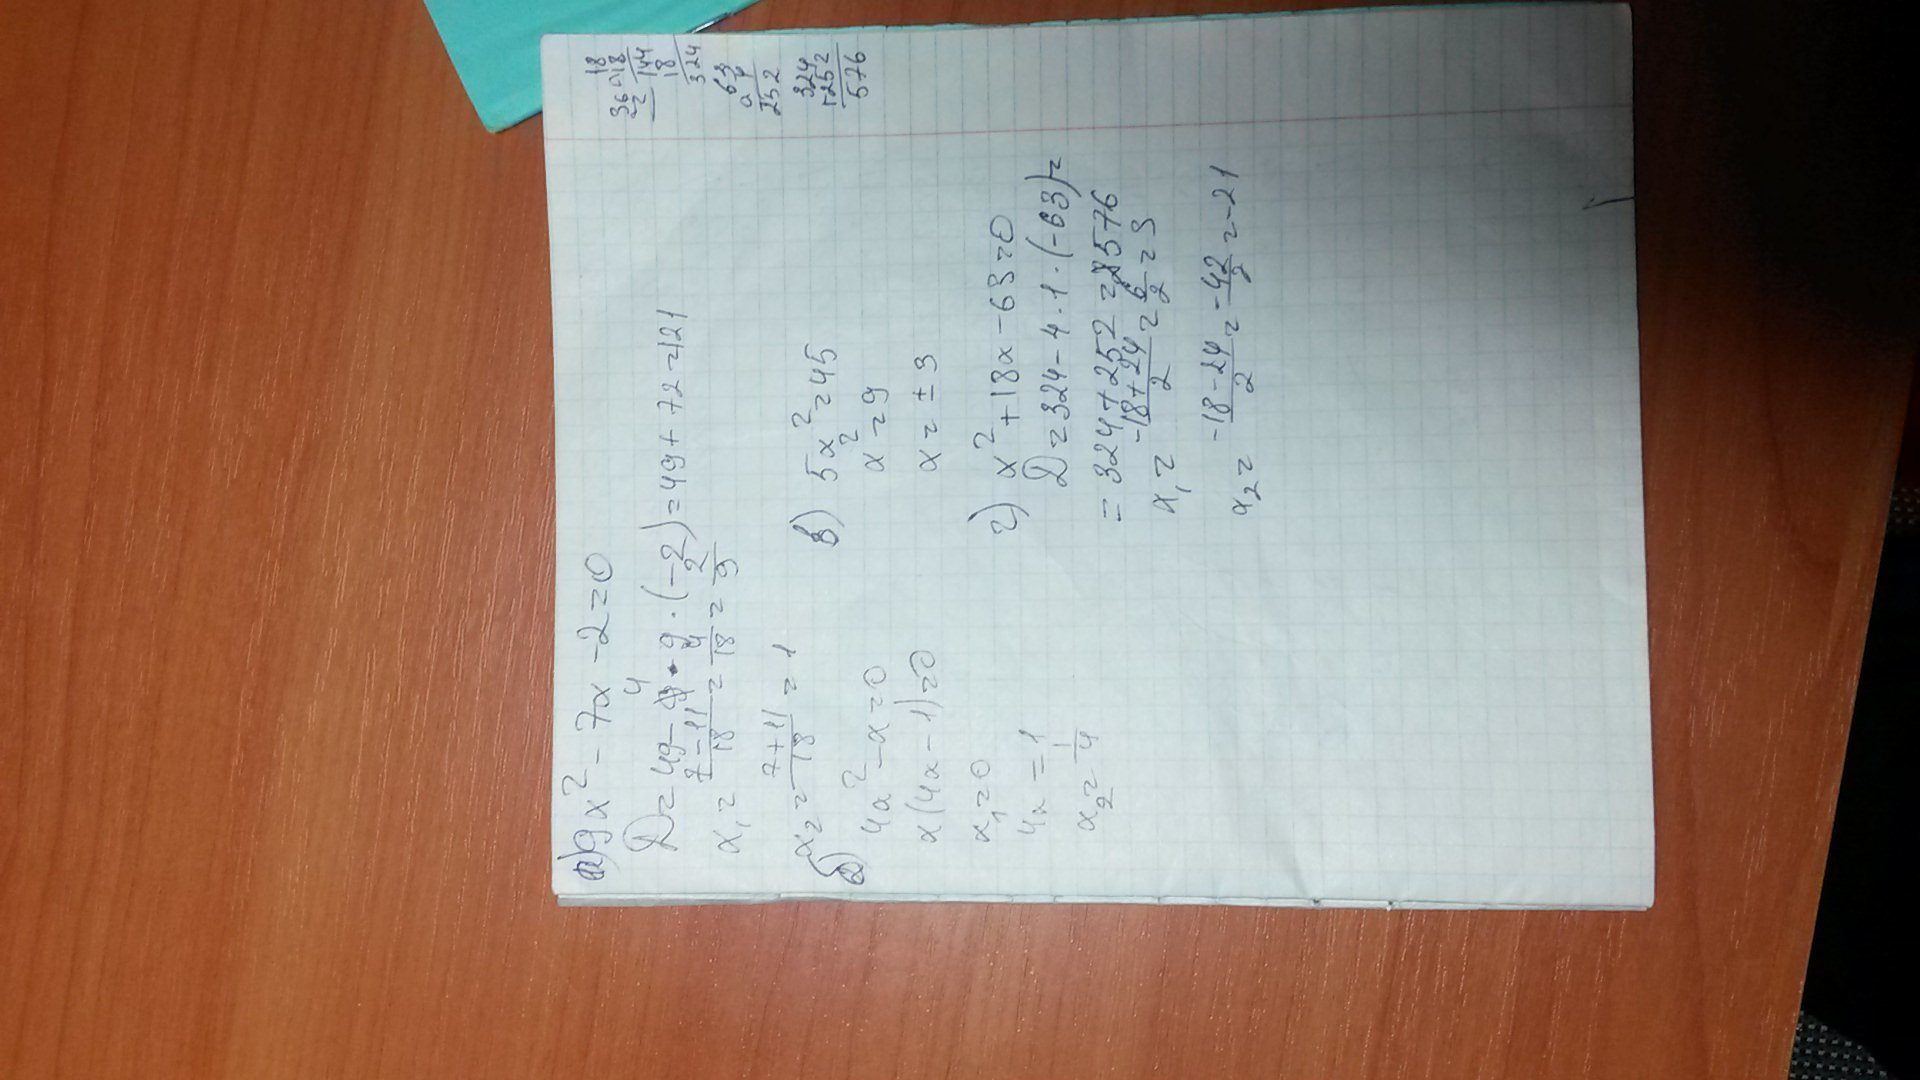 а) 9x² - 7x - 2 = 0
D = 49 - 4 · 9 · (-2) = 49 + 72 = 121
x₁ = (7 - 11)/18 = -4/18 = -2/9
x₂ = (7 + 11)/18 = 1
б) 4x² - x = 0
x(4x - 1) = 0
x₁ = 0
4x = 1
x₂ = 1/4
в) 5x² = 45
x² = 9
x = ± 3
г) x² + 18x - 63 = 0
D = 324 - 4 · 1 · (-63) =
= 324 + 252 = 576
x₁ = (-18 + 24)/2 = 6/2 = 3
x₂ = (-18 - 24)/2 = -42/2 = -21
36
2
18
18
144
18
324
63
4
252
324
+252
576